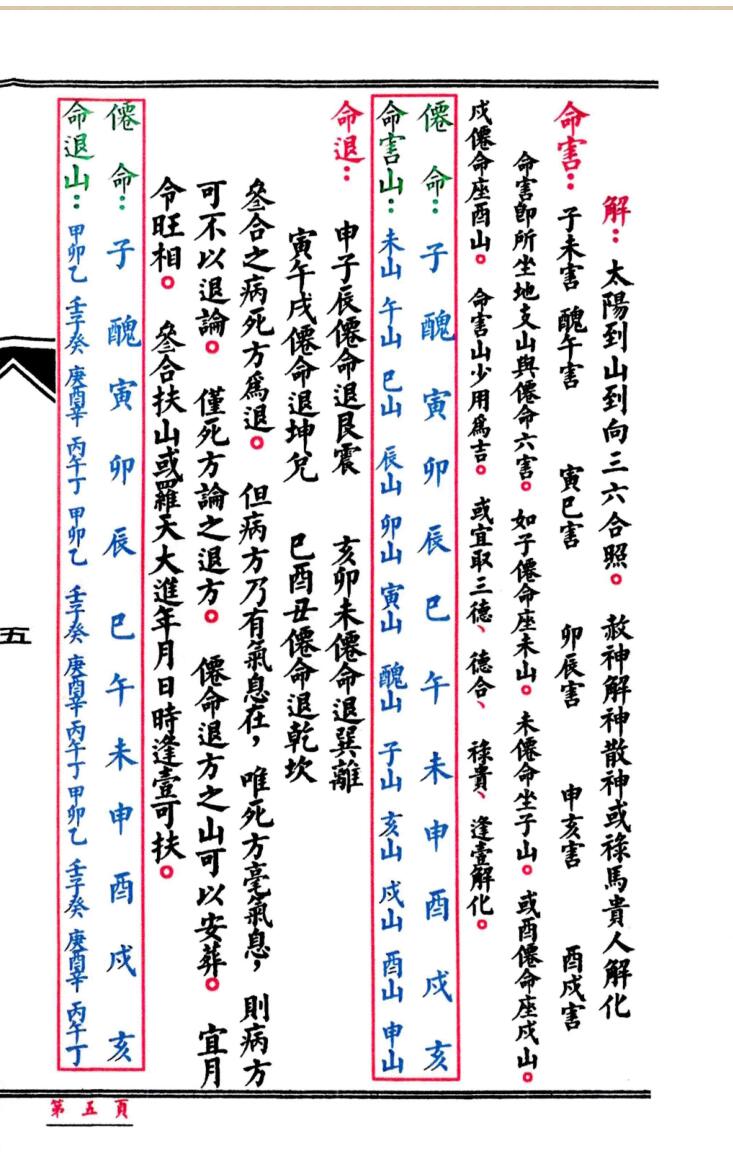 解：太陽到山到向三六合照。 赦神解神散神或祿馬貴人解化
命害：子未害 醜午害 寅巳害 卯辰害 申亥害 酉戌害
命害即所坐地支山與僊命六害。如子僊命座未山。未僊命坐子山。或酉僊命座戍山。
戍僊命座酉山。 命害山少用爲吉。 或宜取三德、德合、 祿貴、逢壹解化。
僊命：子 醜 寅 卯 辰 巳 午 未 申 酉 戍 亥
命害山：未山 午山 巳山 辰山 卯山 寅山 醜山 子山 亥山 戍山 酉山 申山
命退： 申子辰僊命退艮震 亥卯未僊命退巽離
寅午戌僊命退坤兌 巳酉丑僊命退乾坎
叄合之病死方爲退。 但病方乃有氣息在，唯死方毫氣息，則病方
可不以退論。 僅死方論之退方。 僊命退方之山可以安葬。 宜月
令旺相。 叄合扶山或羅天大進年月日時逢壹可扶。
僊命：子 醜 寅 卯 辰 巳 午 未 申 酉 戍 亥
命退山：甲卯乙 壬子癸 庚酉辛 丙午丁 甲卯乙 壬子癸 庚酉辛 丙午丁 甲卯乙 壬子癸 庚酉辛 丙午丁
五
第五頁